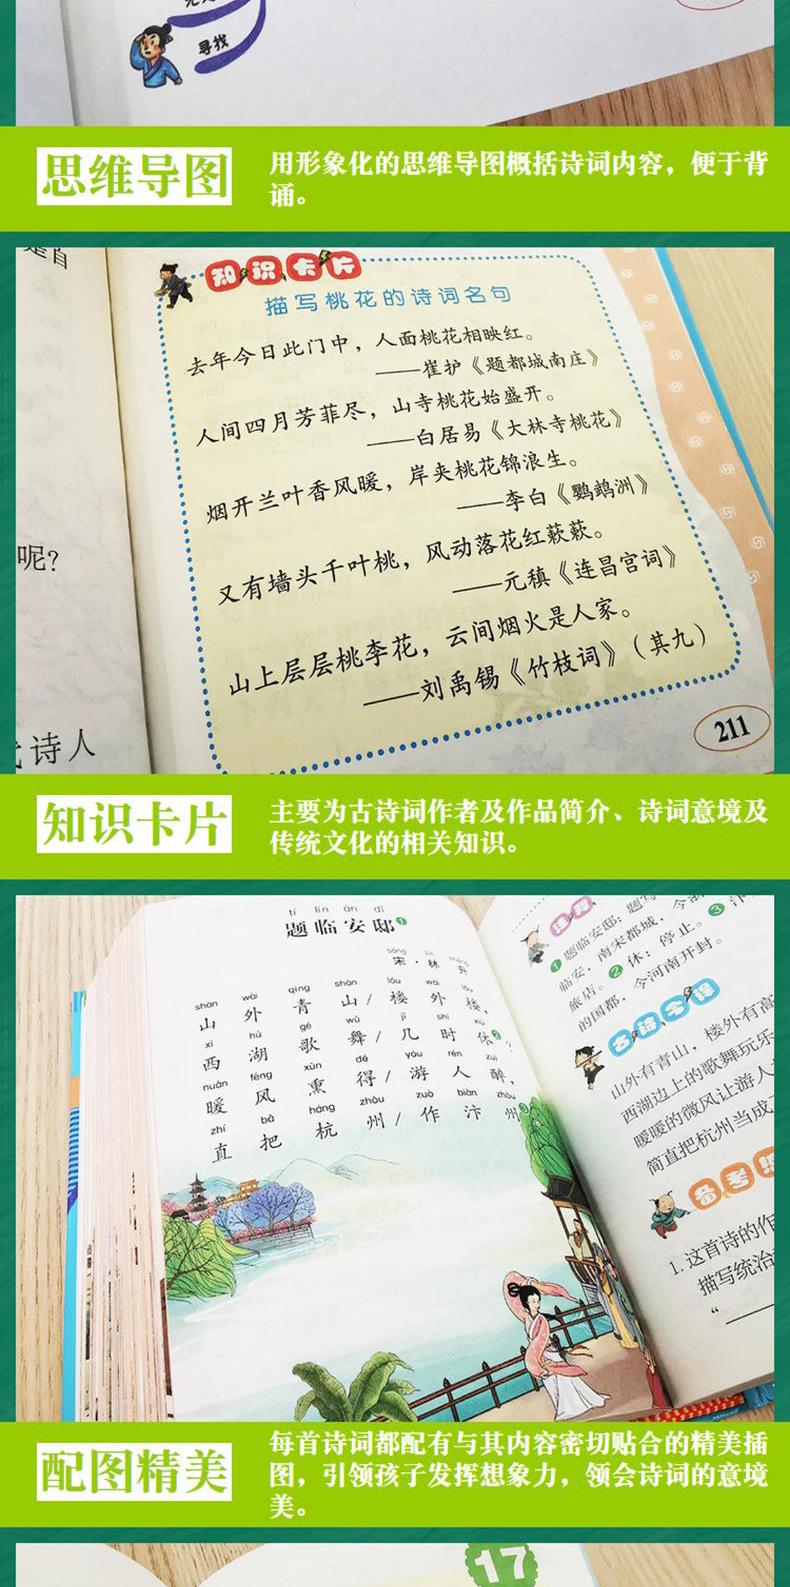 寻找
思维导图
用形象化的思维导图概括诗词内容，便于背
诵。
知识卡片
描写桃花的诗词名句
去年今日此门中，人面桃花相映红。
——崔护《题都城南庄》
人间四月芳菲尽，山寺桃花始盛开。
——白居易《大林寺桃花》
烟开兰叶香风暖，岸夹桃花锦浪生。
——李白《鹦鹉洲》
又有墙头千叶桃，风动落花红蔌蔌。
——元稹《连昌宫词》
山上层层桃李花，云间烟火是人家。
——刘禹锡《竹枝词》（其九）
呢？
诗人
211
知识卡片
主要为古诗词作者及作品简介、诗词意境及
传统文化的相关知识。
tí lín ān dǐ
题临安邸❶
sòng lín shēng
宋·林升
shān wài qīng shān lóu wài lóu
山外青山/楼外楼，
xī hú gē wǔ jǐ shí xiū
西湖歌舞/几时休❷？
nuǎn fēng xūn dé yóu rén zuì
暖风熏得/游人醉，
zhí bǎ háng zhōu zuò biàn zhōu
直把杭州/作汴州❸
❶题临安邸：题写
临安，南宋都城，今浙
旅店。❷休：停止。❸汴
的国都，今河南开封。
古诗今译
山外有青山，楼外有高
西湖边上的歌舞玩乐
暖暖的微风让游人
简直把杭州当成
备考
1.这首诗的作
描写统治
“
配图精美
每首诗词都配有与其内容密切贴合的精美插
图，引领孩子发挥想象力，领会诗词的意境
美。
17